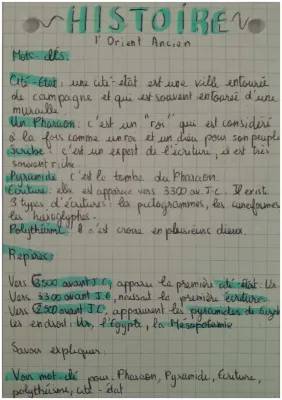 HISTOIRE
l'Orient Ancien
Mots-clés:
Cité-État: une cité-état est une ville entourée
de campagne et qui est souvent entourée d'une
muraille
Un Pharaon: c'est un "roi" qui est considéré
à la fois comme un roi et un dieu pour son peuple
Scribe: c'est un expert de l'écriture, il est très
souvent riche.
Pyramide c'est le tombe du Pharaon.
Écriture: elle est apparue vers 3300 av J-C. Il exist
3 types d'écriture: les pictogrammes, les cunéiformes
les hiéroglyphes.
Polythéisme: c'est croire en plusieurs dieux.
Repères:
Vers 3500 avant J.C, apparu la première cité-état: Ur
Vers 3300 avant J.C, naissait la première écriture
Vers 2500 avant J.C, apparurent les pyramides de Gizeh
les endroit: Ur, l'Égypte, la Mésopotamie
Savoir expliquer:
Voir mot-clé pour: Pharaon, Pyramide, Écriture,
polythéisme, cité-état